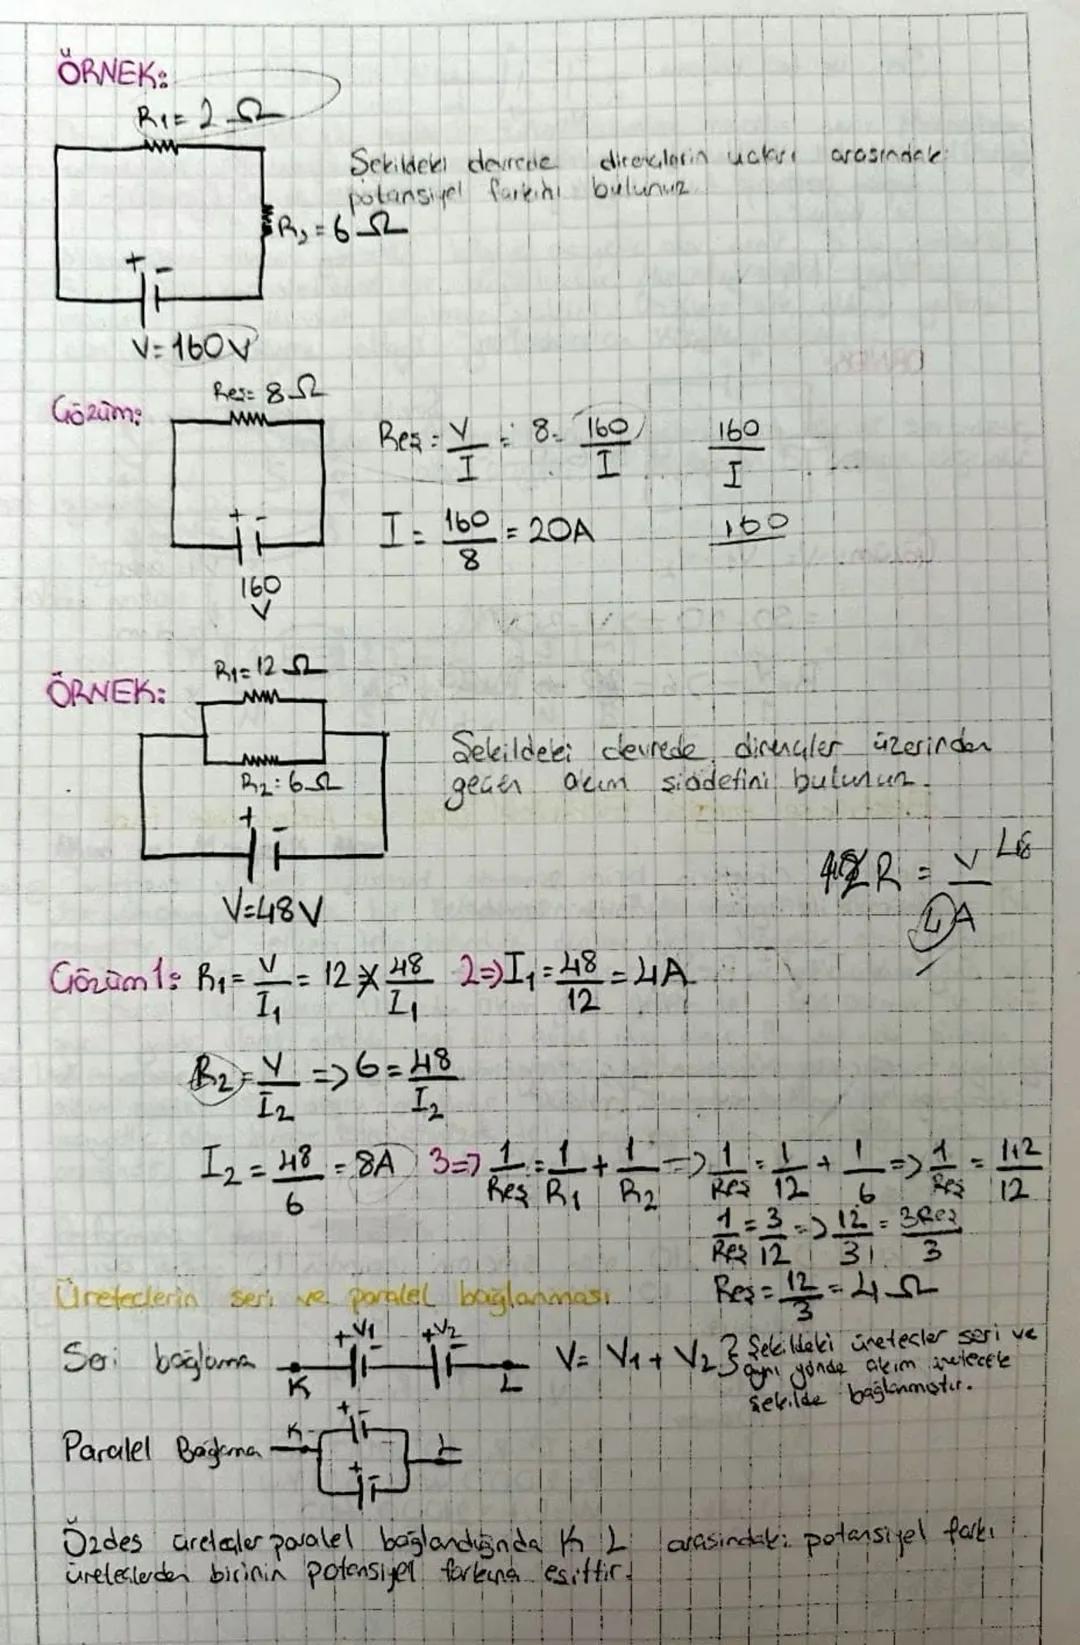 ÖRNEK:
R₁ = 2 Ω
Şekildeki devrede dirençlerin uçları arasındaki
potansiyel farkını bulunuz
R₂ = 6 Ω
+ -
V = 160V
Çözüm:
Reş = 8 Ω
Reş = V/I = 8 = 160/I
160/I
I = 160/8 = 20A
160
+ -
160
V
ÖRNEK:
R₁ = 12 Ω
R₂ = 6 Ω
Şekildeki devrede dirençler üzerinden
geçen akım şiddetini bulunuz.
+ -
V = 48 V
R = V 48
4A
Çözüm 1: R₁ = V/I₁ = 12 48/I₁ 2 => I₁ = 48/12 = 4A
R₂ = V/I₂ => 6 = 48/I₂
I₂ = 48/6 = 8A 3 => 1/Reş = 1/R₁ + 1/R₂ => 1/Reş = 1/12 + 1/6 => 1/Reş = 1+2/12
1/Reş = 3/12 => 12/3 = 3Reş/3
Reş = 12/3 = 4 Ω
Üreteçlerin seri ve paralel bağlanması
Seri bağlama K +V₁ +V₂ L V = V₁ + V₂ } Şekildeki üreteçler seri ve
aynı yönde akım üretecek
şekilde bağlanmıştır.
Paralel Bağlama K + + L
Özdeş üreteçler paralel bağlandığında K L arasındaki potansiyel farkı
üreteçlerden birinin potansiyel farkına eşittir.